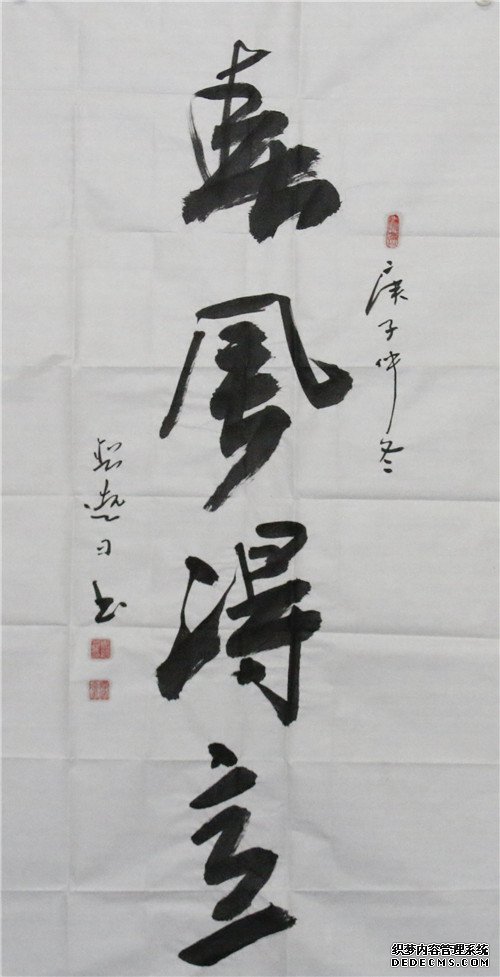 庚子仲冬
春風得意
书
织梦内容管理系统
DEDECMS.COM